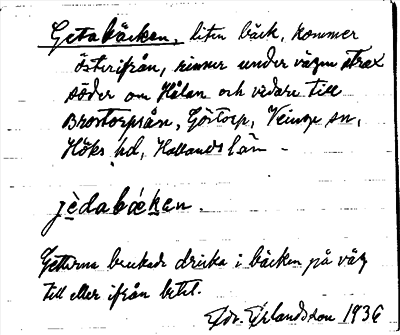 Getabäcken, liten bäck, kommer
österifrån, rinner under vägen strax
söder om Hålan och vidare till
Brostorpsån, Göstorp, Veinge sn,
Höks hd, Hallands län -
jèdabæken.
Getterna brukade dricka i bäcken på väg
till eller ifrån betet.
Erlandsson 1936